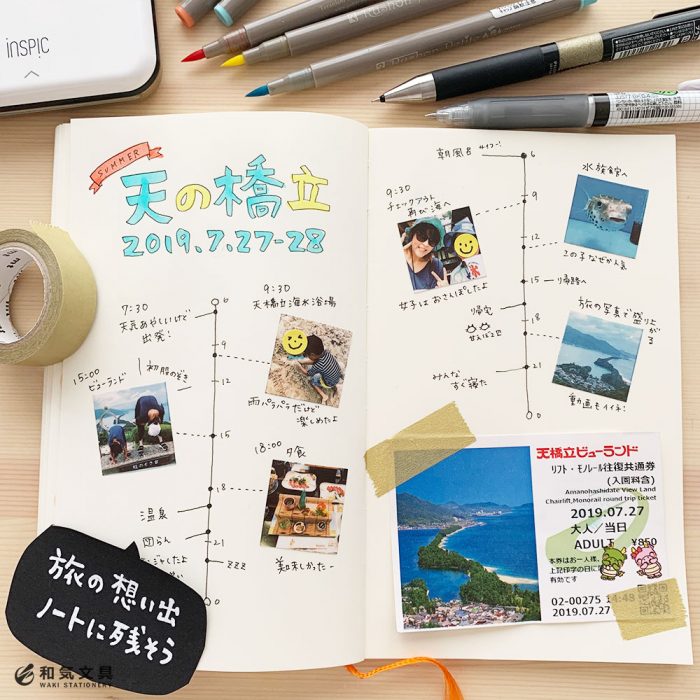 inspic
SUMMER
天の橋立
2019.7.27-28
6
7:30
天気あやしいけど
出発!
9:30
天橋立海水浴場
9
12
雨パラパラだけど
楽しめたよ
15:00
ビューランド
初股のぞき
15
18:00
夕食
18
美味しかったー
温泉
団らん
21
zzz
0
朝風呂
6
9:30
チェックアウト
再び海へ
9
女子はおさんぽしたよ
12
水族館へ
この子なぜか人気
15
帰路へ
帰宅
18
旅の写真で盛り上がる
動画もイイネ!
21
みんな
すぐ寝た
0
天橋立ビューランド
リフト・モノレール往復共通券
(入園料含)
Amanohashidate View Land
Chairlift,Monorail round trip ticket
2019.07.27
大人/当日
ADULT ¥850
本券はお一人様、
上記印字の日に
有効です
02-00275 14:48
2019.07.27
旅の想い出
ノートに残そう
和気文具
WAKI STATIONERY